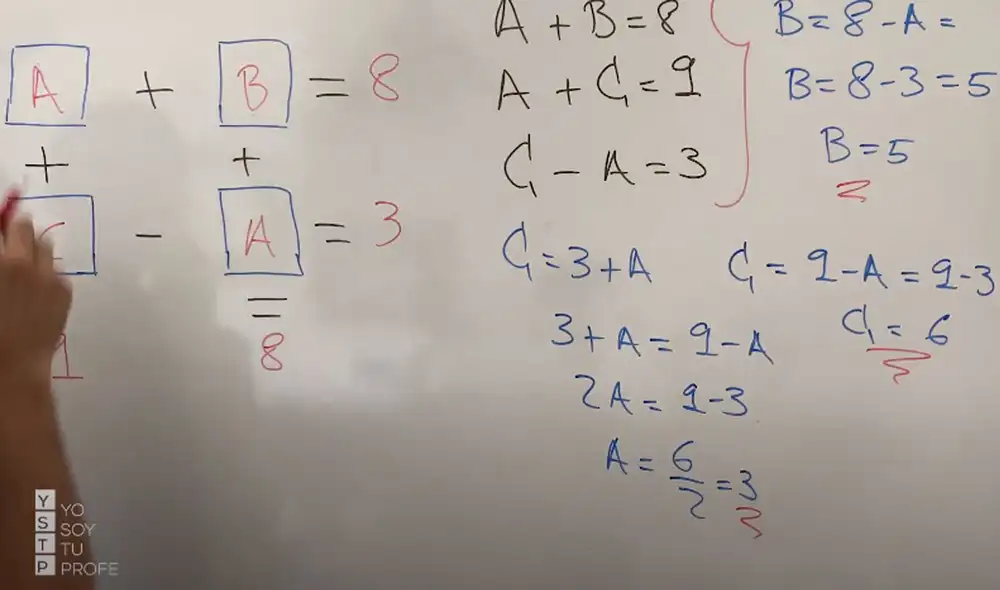 A + B = 8
+ +
C - A = 3
=
9 8
A + B = 8
A + C = 9
C - A = 3
B = 8 - A =
B = 8 - 3 = 5
B = 5
C = 3 + A
3 + A = 9 - A
2A = 9 - 3
A = 6/2 = 3
C = 9 - A = 9 - 3
C = 6
Y YO
S SOY
T TU
P PROFE